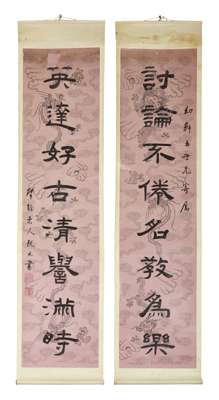 討論不倦名教為樂
英達好古清譽滿時